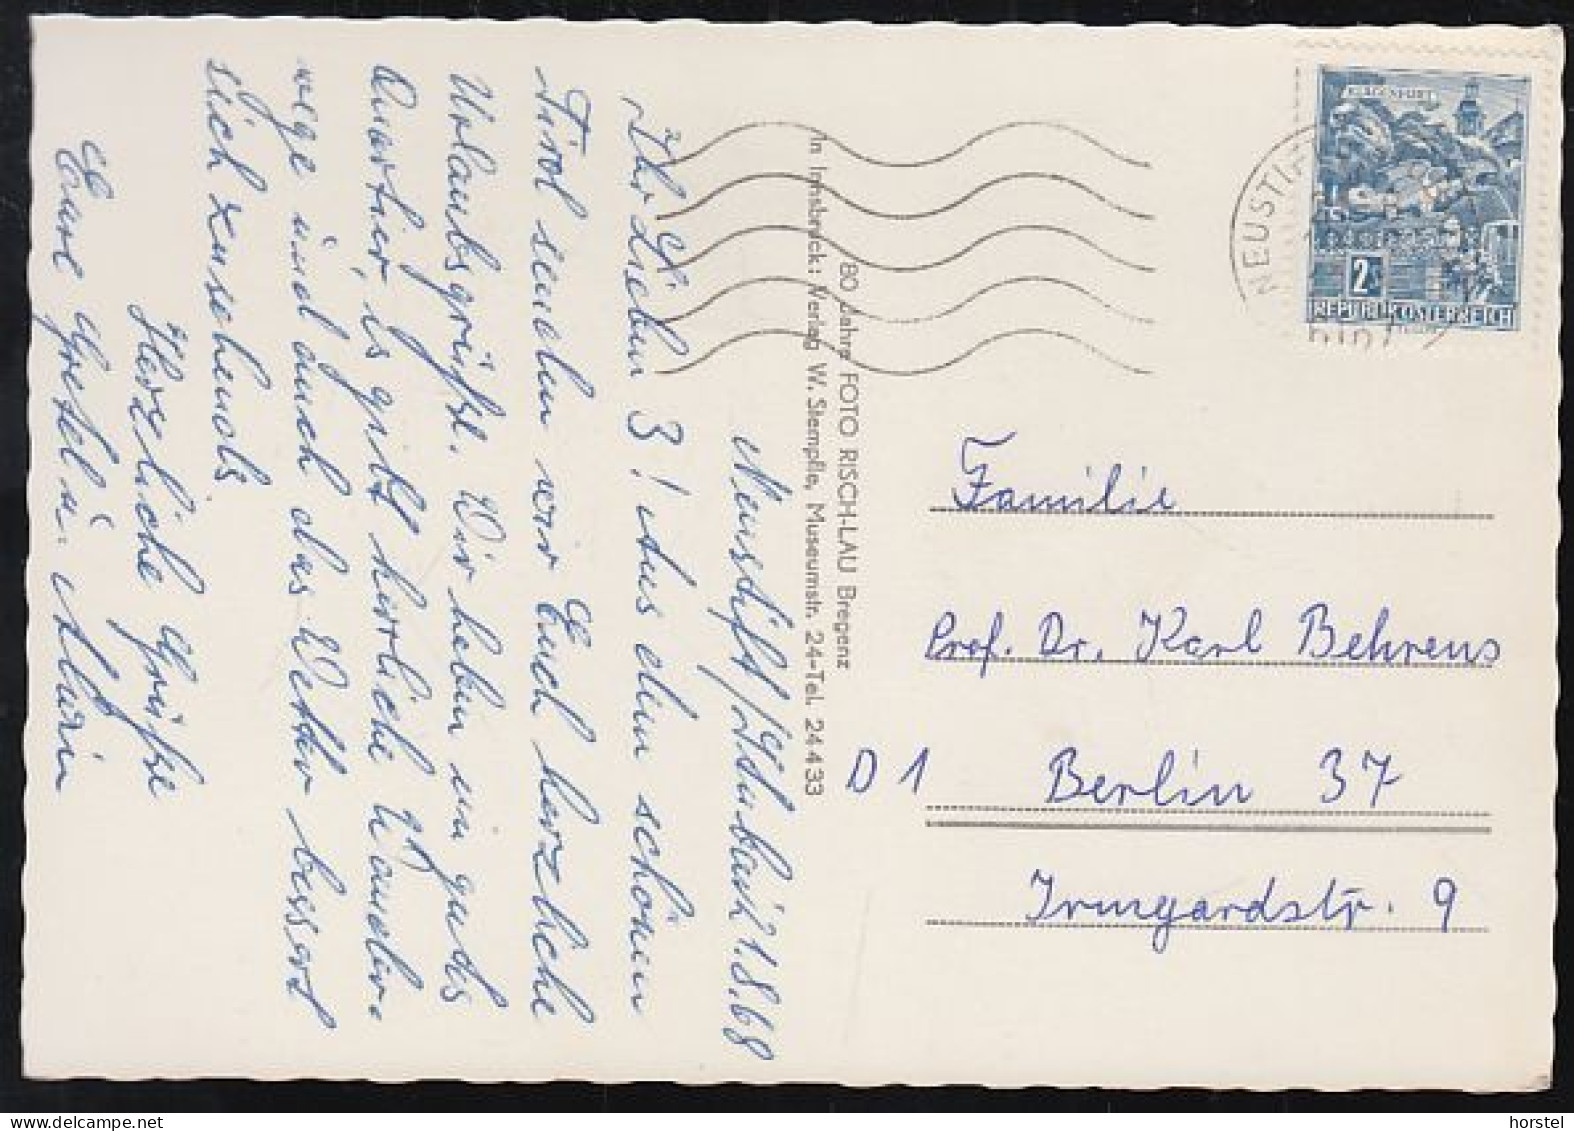 Neustift/Stubait. 1.8.68
Ihr Lieben 3! Aus dem schönen
Tirol senden wir Euch herzliche
Urlaubsgrüße. Wir haben ein gutes
Quartier, es gibt herrliche Wander-
wege und auch das Wetter bessert
sich zusehends.
Herzliche Grüße
Eure Gretel u.
80 Jahre FOTO RISCH-LAU Bregenz
In Innsbruck: Verlag W. Stempfle, Museumstr. 24-Tel. 24433
NEUSTI
KLAGENFURT
2
REPUBLIK ÖSTERREICH
Familie
Prof. Dr. Karl Behrens
D 1 Berlin 37
Irmgardstr. 9
horstel